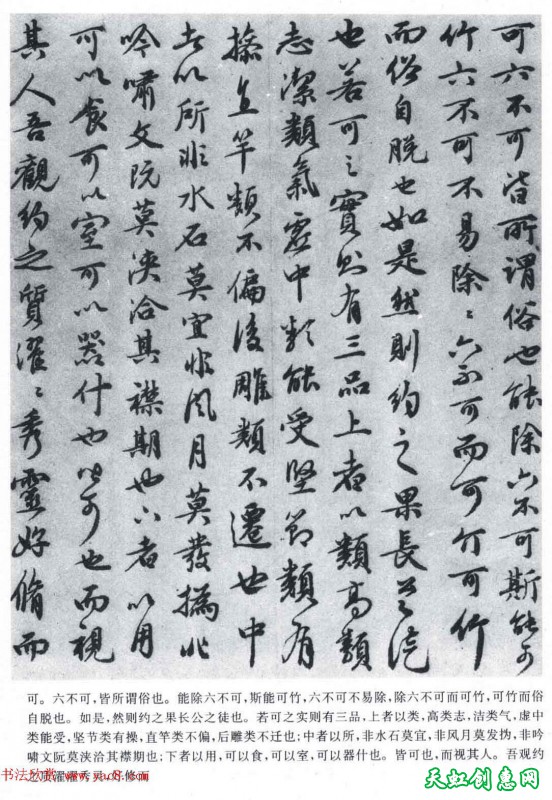 可六不可皆所謂俗也能除六不可斯能可
竹六不可不易除〻六不可而可竹可竹
而俗自脱也如是然則約之果長公之徒
也若可之實則有三品上者以類高類
志潔類氣虛中類能受堅節類有
操直竿類不偏後雕類不遷也中
者以所非水石莫宜非風月莫發撝非
吟嘯文阮莫浹洽其襟期也下者以用
可以食可以室可以器什也皆可也而視
其人吾觀約之質濯〻秀靈好脩而
可。六不可，皆所谓俗也。能除六不可，斯能可竹，六不可不易除，除六不可而可竹，可竹而俗
自脱也。如是，然则约之果长公之徒也。若可之实则有三品，上者以类，高类志，洁类气，虚中
类能受，坚节类有操，直竿类不偏，后雕类不迁也；中者以所，非水石莫宜，非风月莫发㧑，非吟
啸文阮莫浃洽其襟期也；下者以用，可以食，可以室，可以器什也。皆可也，而视其人。吾观约
之质濯濯秀灵，好修而
书法欣赏
天虹创意网